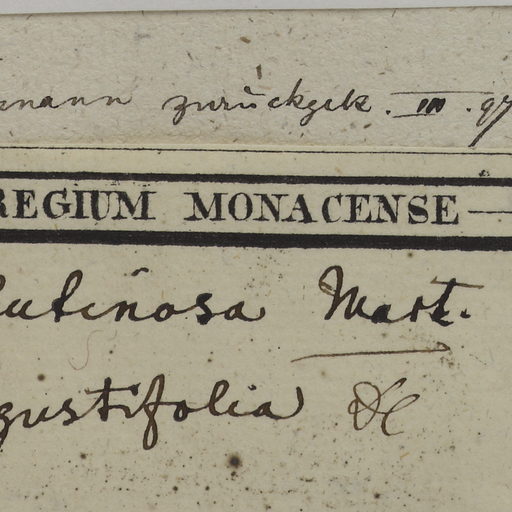 mann zurückgek. III. 97
REGIUM MONACENSE
lutinosa Mart.
gustifolia DC